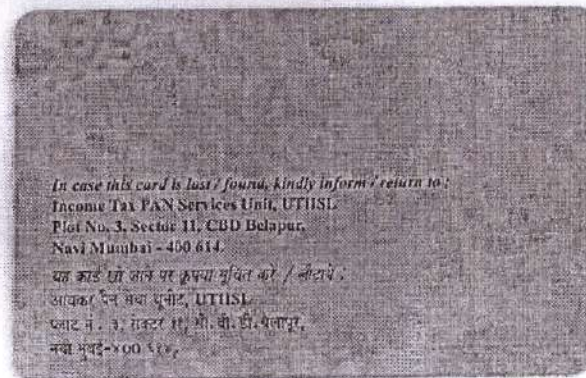 In case this card is lost / found, kindly inform / return to :
Income Tax PAN Services Unit, UTIISL
Plot No. 3, Sector 11, CBD Belapur,
Navi Mumbai - 400 614.
यह कार्ड खो जाने पर कृपया सूचित करें / लौटाये :
आयकर पैन सेवा यूनीट, UTIISL
प्लाट नं. ३, सेक्टर ११, सी. बी. डी. बेलापूर,
नवी मुंबई-४०० ६१४.